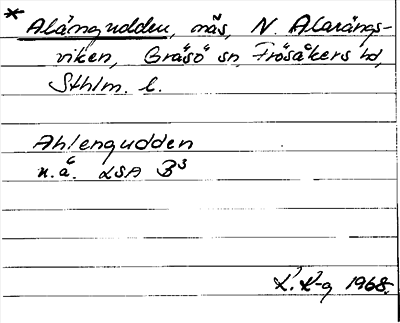 * Alångudden, näs, N. Alarängs-
viken, Gräsö sn, Frösåkers hd,
Sthlm. l.
Ahlengudden
u.å. LSA B³
L. L-g 1968.